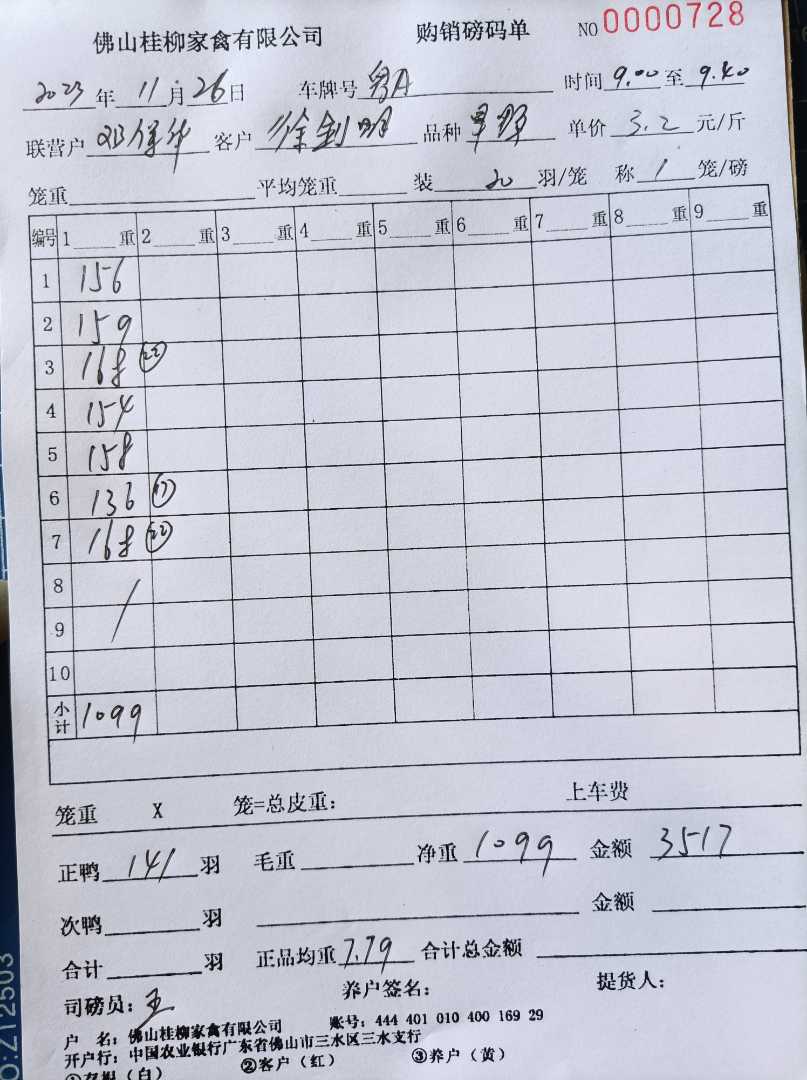 佛山桂柳家禽有限公司 购销磅码单 NO 0000728
2023年 11月 26日 车牌号 粤A 时间 9.00 至 9.40
联营户 邓保华 客户 徐剑明 品种 单价 3.2 元/斤
笼重 平均笼重 装 20 羽/笼 称 1 笼/磅
编号 1 重 2 重 3 重 4 重 5 重 6 重 7 重 8 重 9 重
1 156
2 159
3 168 22
4 154
5 158
6 136 17
7 168 22
8
9
10
小计 1099
笼重 X 笼=总皮重: 上车费
正鸭 141 羽 毛重 净重 1099 金额 3517
次鸭 羽 金额
合计 羽 正品均重 7.79 合计总金额
司磅员: 王 养户签名: 提货人:
户 名: 佛山桂柳家禽有限公司 账号: 444 401 010 400 169 29
开户行: 中国农业银行广东省佛山市三水区三水支行
①存根(白) ②客户(红) ③养户(黄)